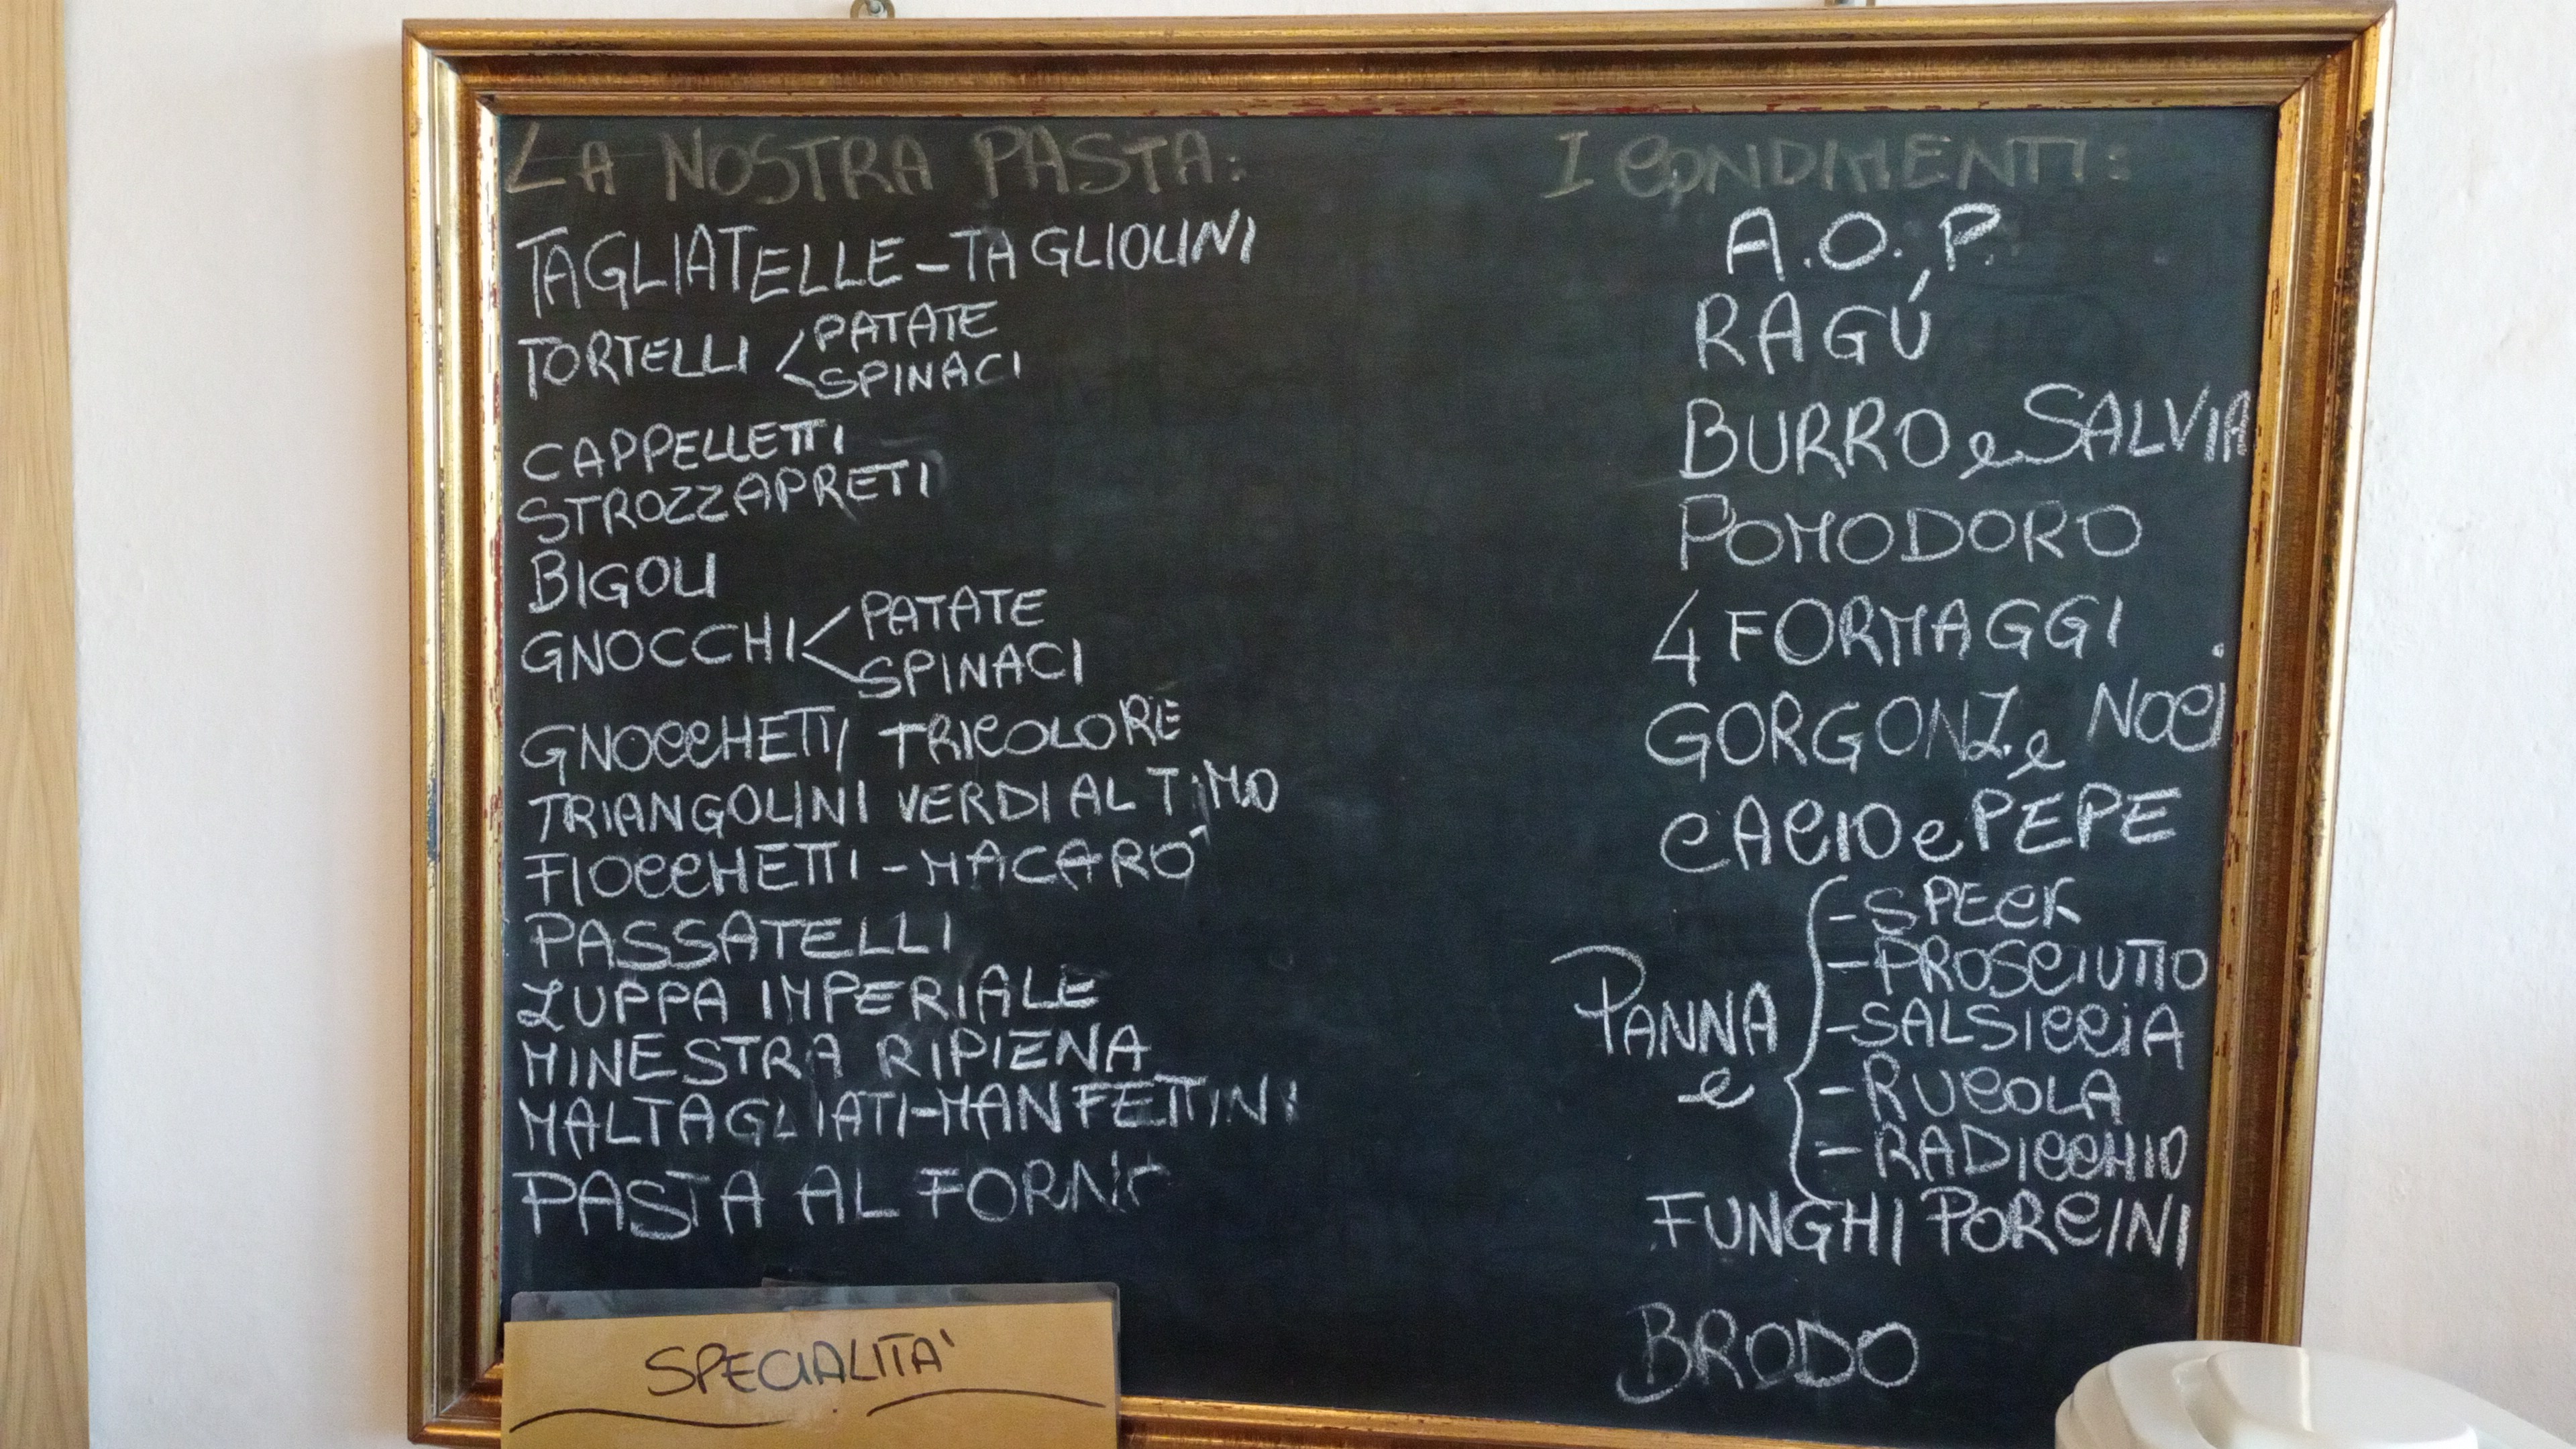 LA NOSTRA PASTA:
TAGLIATELLE - TAGLIOLINI
TORTELLI < PATATE
SPINACI
CAPPELLETTI
STROZZAPRETI
BIGOLI
GNOCCHI < PATATE
SPINACI
GNOCCHETTI TRICOLORE
TRIANGOLINI VERDI AL TIMO
FIOCCHETTI - MACARO'
PASSATELLI
ZUPPA IMPERIALE
MINESTRA RIPIENA
MALTAGLIATI-MANFETTINI
PASTA AL FORNO
SPECIALITA'
I CONDIMENTI:
A.O.P.
RAGÚ
BURRO e SALVIA
POMODORO
4 FORMAGGI
GORGONZ. e NOCI
CACIO e PEPE
PANNA e
- SPECK
- PROSCIUTTO
- SALSICCIA
- RUCOLA
- RADICCHIO
FUNGHI PORCINI
BRODO